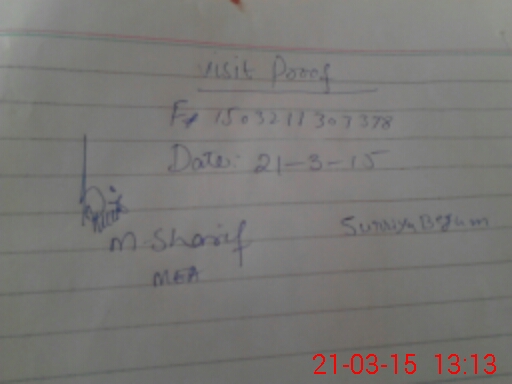 Visit Proof
Fr 1503211307378
Date: 21-3-15
M. Sharif
Surriya Begum
MEA
21-03-15 13:13